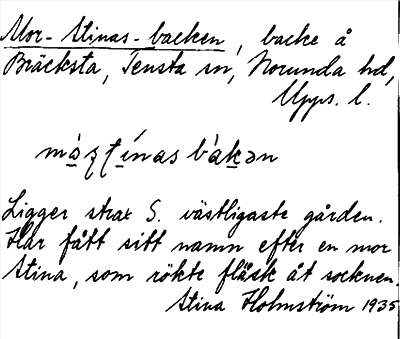 Mor-Stinas-backen, backe å
Bräcksta, Tensta sn, Norunda hd,
Upps. l.
Ligger strax S. västligaste gården.
Har fått sitt namn efter en mor
Stina, som rökte fläsk åt socknen.
Stina Holmström 1935